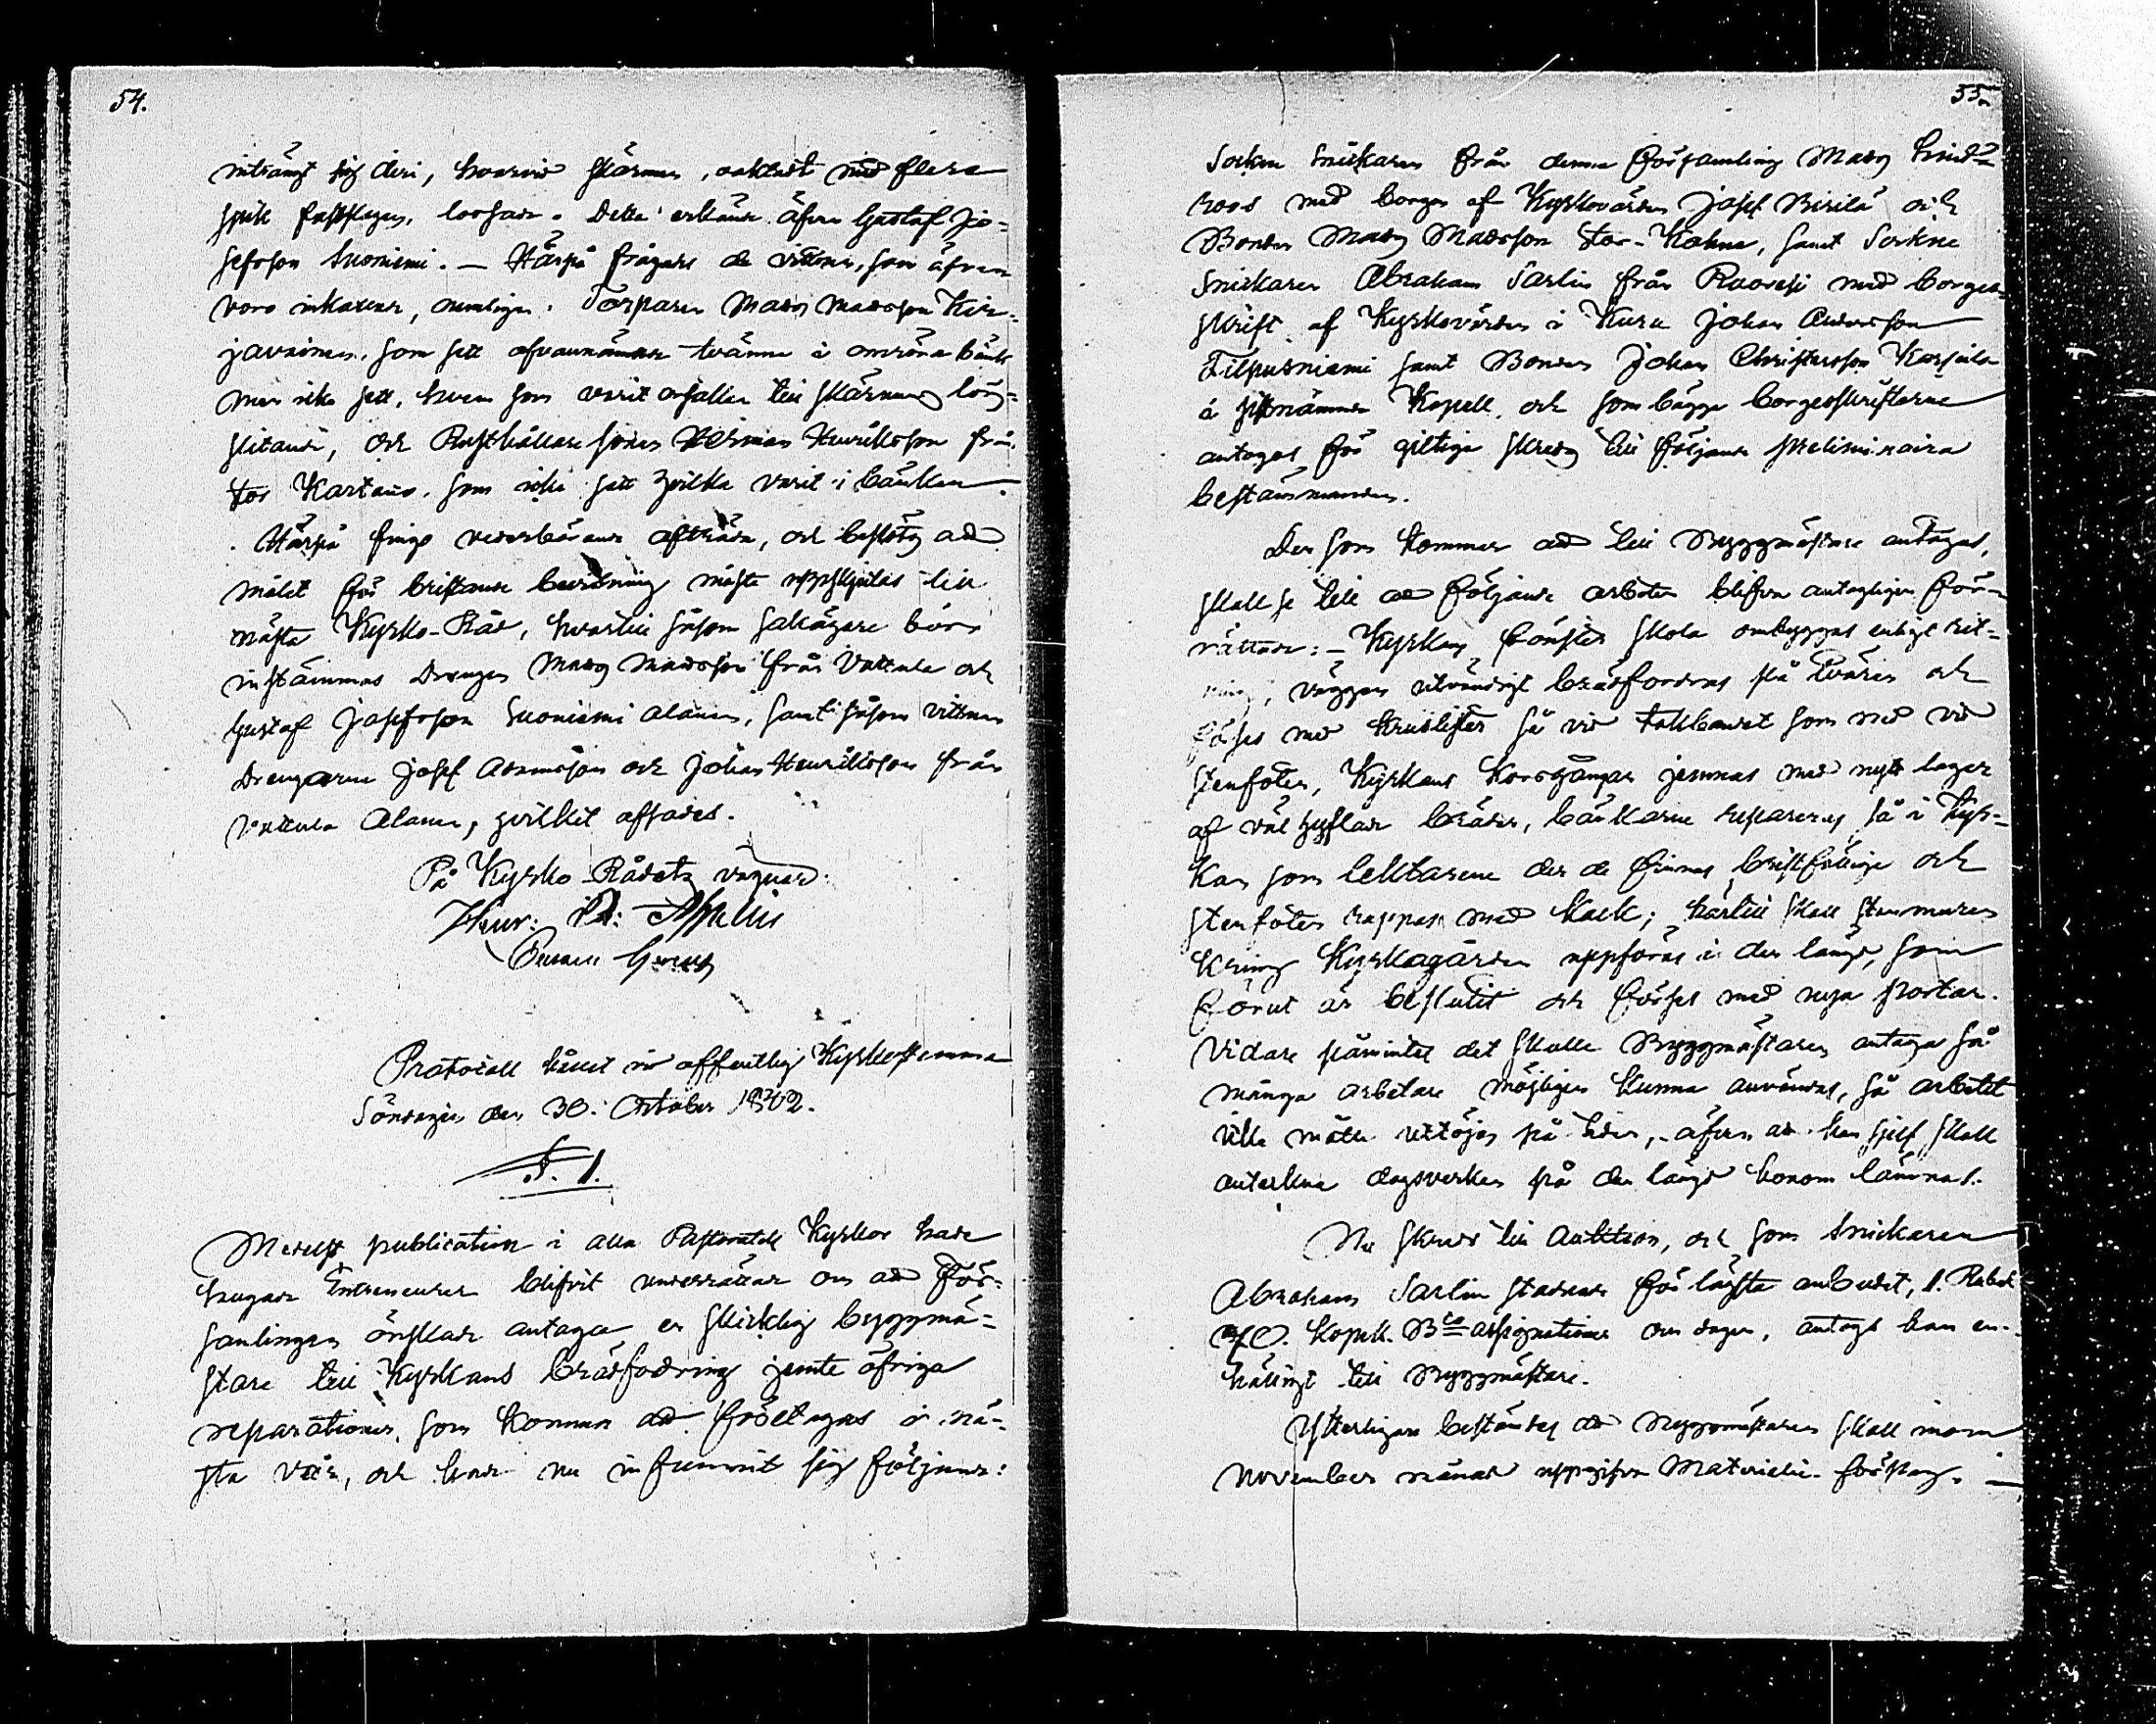 54.
inträngt sig deri, hvarvid skärmen, oaktadt med flera
spik fastslagen, lossade. Detta erkände äfven Gustaf Jo-
sefsson Suoniemi. — Härpå frågades de vittnen, som äfven
voro inkallade, nemligen: Torparen Mats Matsson Kir-
javainen, som sett ofvannämnde tvänne i omrörda bänk
men icke sett, hvem som varit orsaken till skärmens lös-
slitande, och Rusthållare sonen Herman Henriksson från
Stor Kartano, som icke sett hvilka varit i bänken.
Härpå fingo vederbörande afträda, och beslöts att
målet för bristande bevisning måste uppskjutas till
nästa Kyrko-Råd, hvartill såsom sakägare böra
instämmas Drengen Mats Matsson från Vattula och
Gustaf Josefsson Suoniemi Alanen, samt såsom vittnen
Drengarne Josef Adamsson och Johan Henriksson från
Vattula Alanen, hvilket afsades.
På Kyrko-Rådets vägnar:
Henr:
Protocoll hållet vid offentlig Kyrkostemma
Söndagen den 30. October 1842.
§. 1.
Medelst publication i alla Pastoratets Kyrkor hade
hugade Entreneurer blifvit underrättade om att För-
samlingen önskade antaga en skicklig byggmä-
stare till Kyrkans brädfodring jemte öfriga
reparationer, som komma att företagas i nä-
sta vår, och hade nu infunnit sig följande:
55.
Socken Snickaren från denna församling Mats Lind-
roos med borgen af Kyrkovärden Josef Birilä och
Bonden Mats Matsson Stor-Kahna, samt Sockne
Snickaren Abraham Sarlin från Ruovesi med borges-
skrift af Kyrkovärden i Kuru Johan Andersson
Filpusniemi samt Bonden Johan Christersson Karjula
i sistnämnde Kapell, och som bägge borgesskrifterne
antogos för giltiga skreds till följande preliminaira
bestämmanden.
Den som kommer att till Byggmästare antagas,
skall se till att följande arbeten blifva antagligen för-
rättade: — Kyrkans fönster skola ombyggas enligt rit-
ning, väggen utvändigt brädfordras på tvären och
förses med kruslister så vid takbandet som ned vid
stenfoten, Kyrkans Korsgångar jemnas med nytt lager
af väl hyflade bräder, bänkarne repareras så i Kyr-
kan som lektarene der de finnas bristfällige och
stenfoten rappas med kalk; härtill skall stenmuren
kring Kyrkogården uppföras i den längd, som
förut är beslutit och förses med nya portar.
Vidare påmintes det skulle Byggmästaren antaga så
många arbetare möjligen kunna användas, så arbetet
icke måtte uttöjas på tiden, äfven att han sjelf skall
anteckna dagsverken på den längd honom lämnas.
Nu skreds till Auktion, och som Snickaren
Abraham Sarlin stadnade för lägsta anbudet, 1. Rubel
70. Kopek. B:co assignationer om dagen, antogs han en-
hälligt till Byggmästare.
Ytterligare bestämdes att Byggmästaren skall inom
November månad uppgifva Materialie-förslag. —